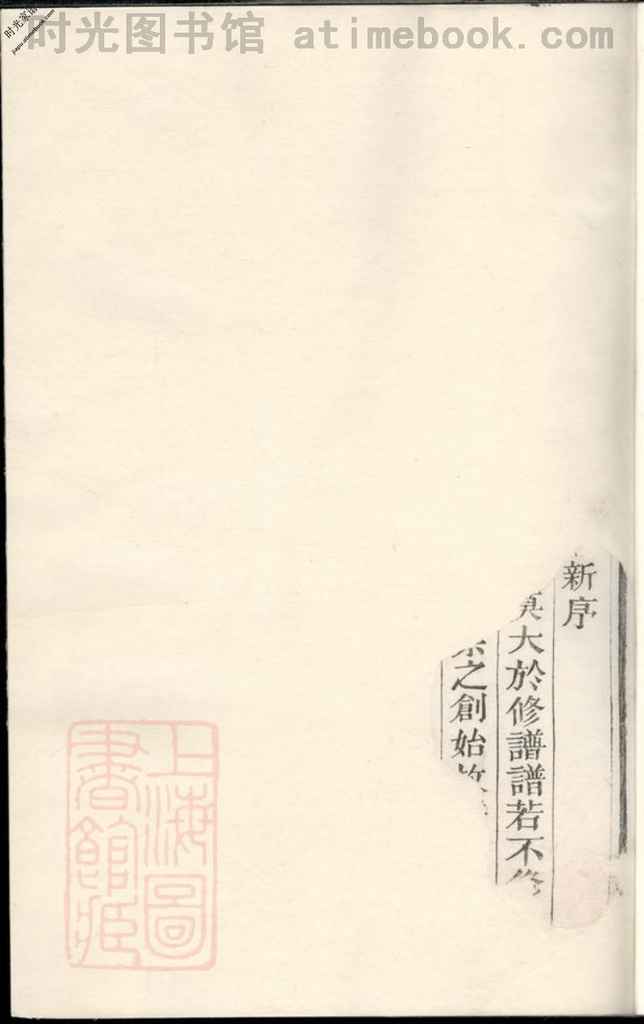 时光图书馆 atimebook.com
新序
莫大於修譜譜若不修
之創始
上海圖
書館臧